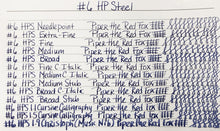 #6 HP Steel
#6 HPS Needlepoint Piper the Red Fox
#6 HPS Extra-Fine Piper the Red Fox
#6 HPS Fine Piper the Red Fox
#6 HPS Medium Piper the Red Fox
#6 HPS Broad Piper the Red Fox
#6 HPS Fine C. Italic Piper the Red Fox
#6 HPS Medium C. Italic Piper the Red Fox
#6 HPS Medium Stub Piper the Red Fox
#6 HPS Broad C. Italic Piper the Red Fox
#6 HPS Broad Stub Piper the Red Fox
#6 HPS 1.1 Cursive Calligraphy Piper the Red Fox
#6 HPS 1.5 Cursive Calligraphy Piper the Red Fox
#6 HPS 1.9 Piper the Red Fox